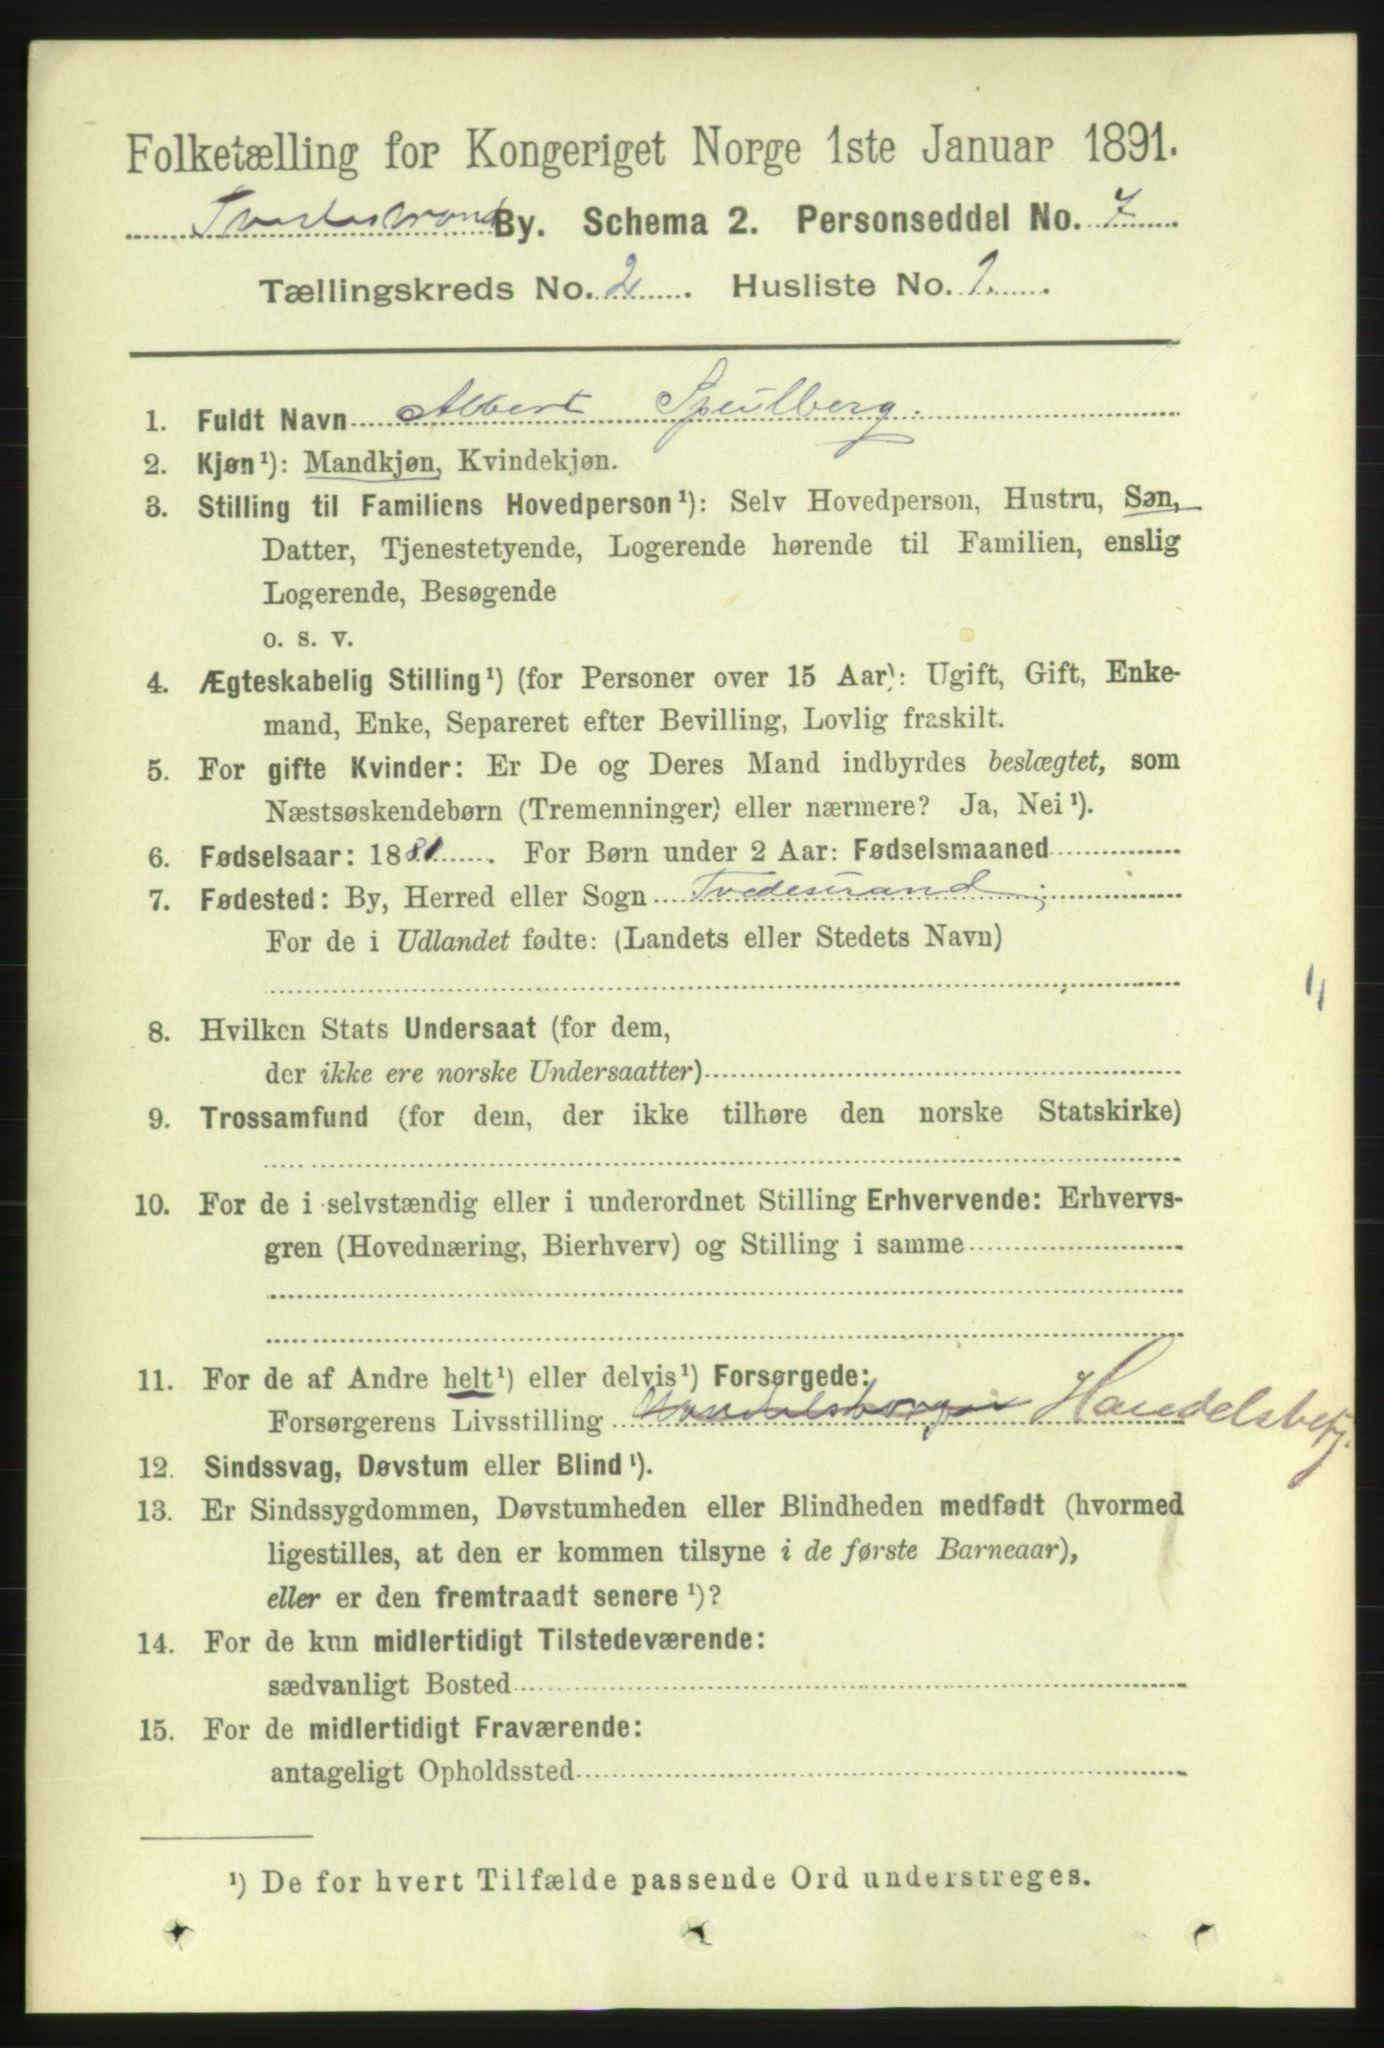 Folketælling for Kongeriget Norge 1ste Januar 1891.
Tvedestrand By. Schema 2. Personseddel No. 7
Tællingskreds No. 2 . Husliste No. 1.
1. Fuldt Navn Albert Speilberg.
2. Kjøn¹): Mandkjøn, Kvindekjøn.
3. Stilling til Familiens Hovedperson¹): Selv Hovedperson, Hustru, Søn,
Datter, Tjenestetyende, Logerende hørende til Familien, enslig
Logerende, Besøgende
o. s. v.
4. Ægteskabelig Stilling¹) (for Personer over 15 Aar): Ugift, Gift, Enke-
mand, Enke, Separeret efter Bevilling, Lovlig fraskilt.
5. For gifte Kvinder: Er De og Deres Mand indbyrdes beslægtet, som
Næstsøskendebørn (Tremenninger) eller nærmere? Ja, Nei¹).
6. Fødselsaar: 1881. For Børn under 2 Aar: Fødselsmaaned
7. Fødested: By, Herred eller Sogn Tvedestrand ;
For de i Udlandet fødte: (Landets eller Stedets Navn)
8. Hvilken Stats Undersaat (for dem,
der ikke ere norske Undersaatter)
9. Trossamfund (for dem, der ikke tilhøre den norske Statskirke)
10. For de i selvstændig eller i underordnet Stilling Erhvervende: Erhvervs-
gren (Hovednæring, Bierhverv) og Stilling i samme
11. For de af Andre helt¹) eller delvis¹) Forsørgede:
Forsørgerens Livsstilling Handelsborger Handelsbetj.
12. Sindssvag, Døvstum eller Blind¹).
13. Er Sindssygdommen, Døvstumheden eller Blindheden medfødt (hvormed
ligestilles, at den er kommen tilsyne i de første Barneaar),
eller er den fremtraadt senere¹)?
14. For de kun midlertidigt Tilstedeværende:
sædvanligt Bosted
15. For de midlertidigt Fraværende:
antageligt Opholdssted
¹) De for hvert Tilfælde passende Ord understreges.